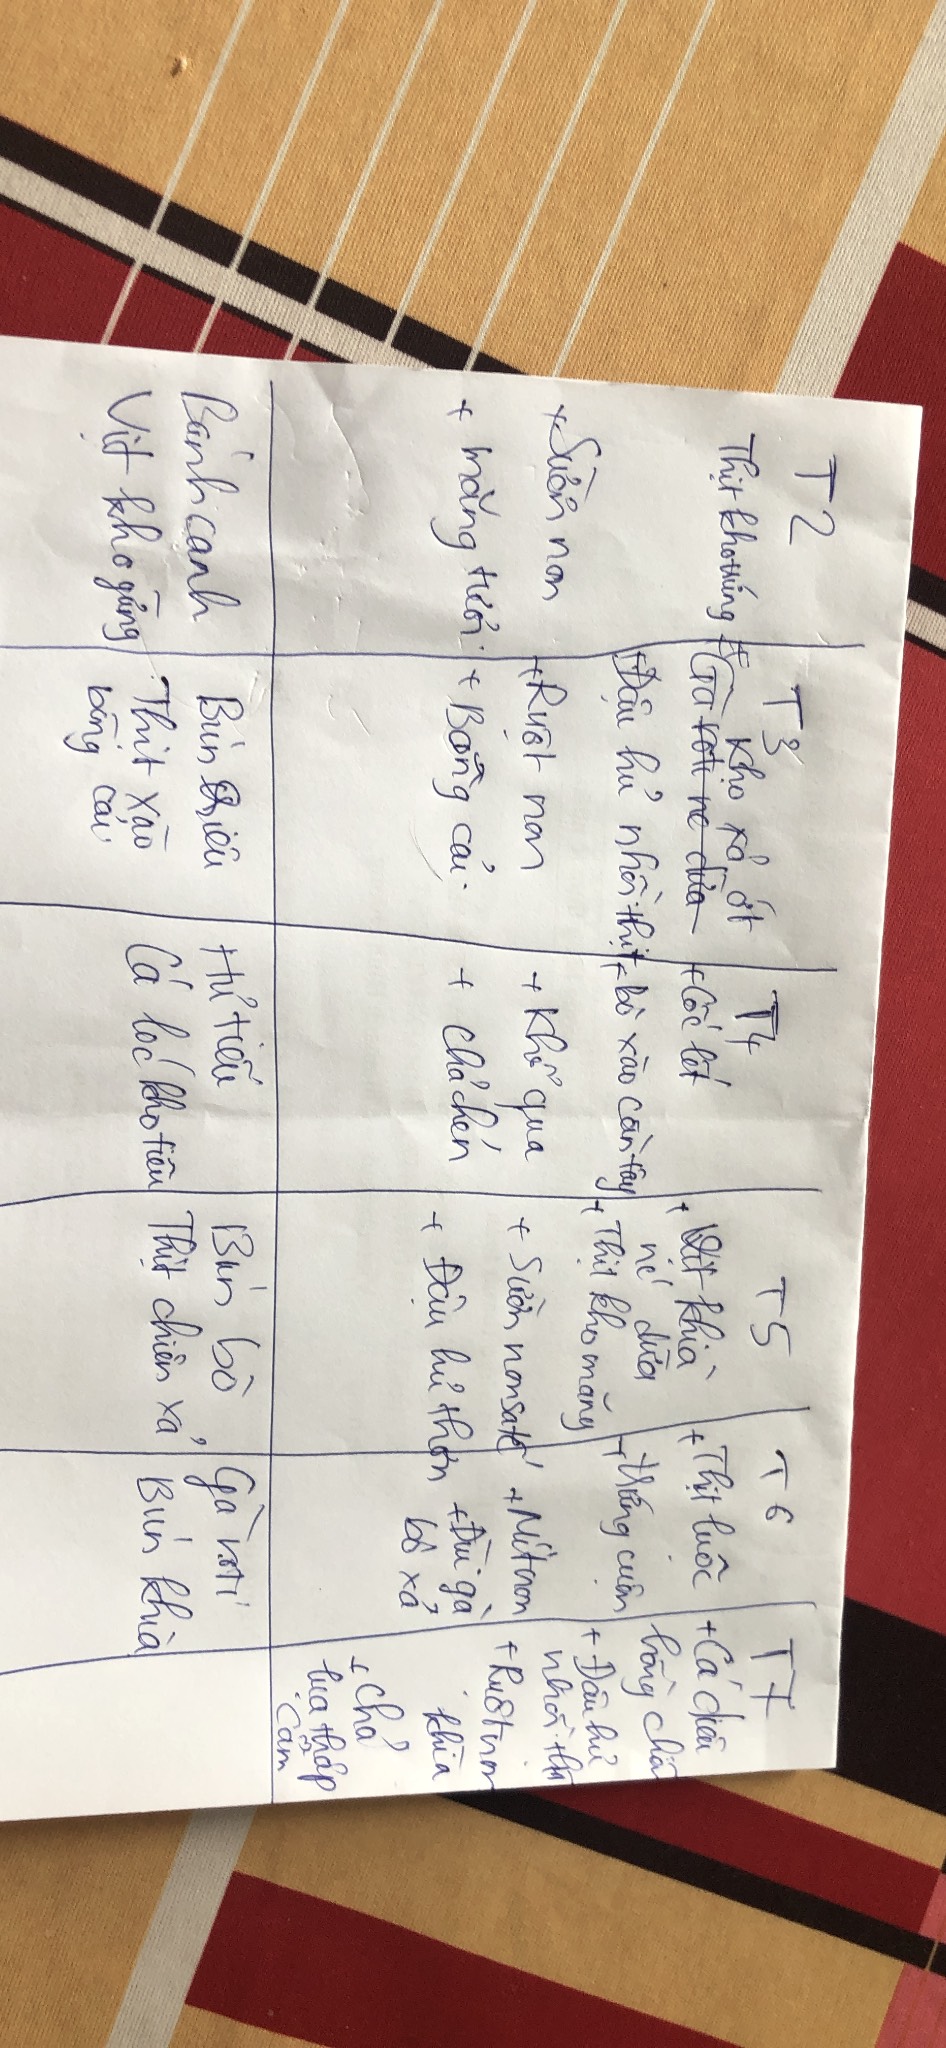 T2
Thịt kho trứng
+ Sườn non
+ măng tươi
T3
+ Kho xả ớt
Gà roti nc dừa
+ Đậu hủ nhồi thịt
+ Ruột non
+ Bông cải
T4
+ Cốc lết
+ bò xào cần tây
+ Khổ qua
+ chả chén
T5
+ Vịt khìa
nc dừa
+ Thịt kho măng
+ Sườn non saté
+ Đậu hủ thơn
T6
+ Thịt luộc
+ trứng cuộn
+ Mít non
+ Đùi gà
bô xả
T7
+ Cá diêu
hồng chiê
+ Đậu hủ
nhồi thịt
+ Ruột non
khìa
+ Chả
lụa thập
cẩm
Bánh canh
Vịt kho gừng
Bún riêu
Thịt xào
bông cải
Hủ tiếu
Cá lóc kho tiêu
Bún bò
Thịt chiên xả
Gà roti
Bún khìa